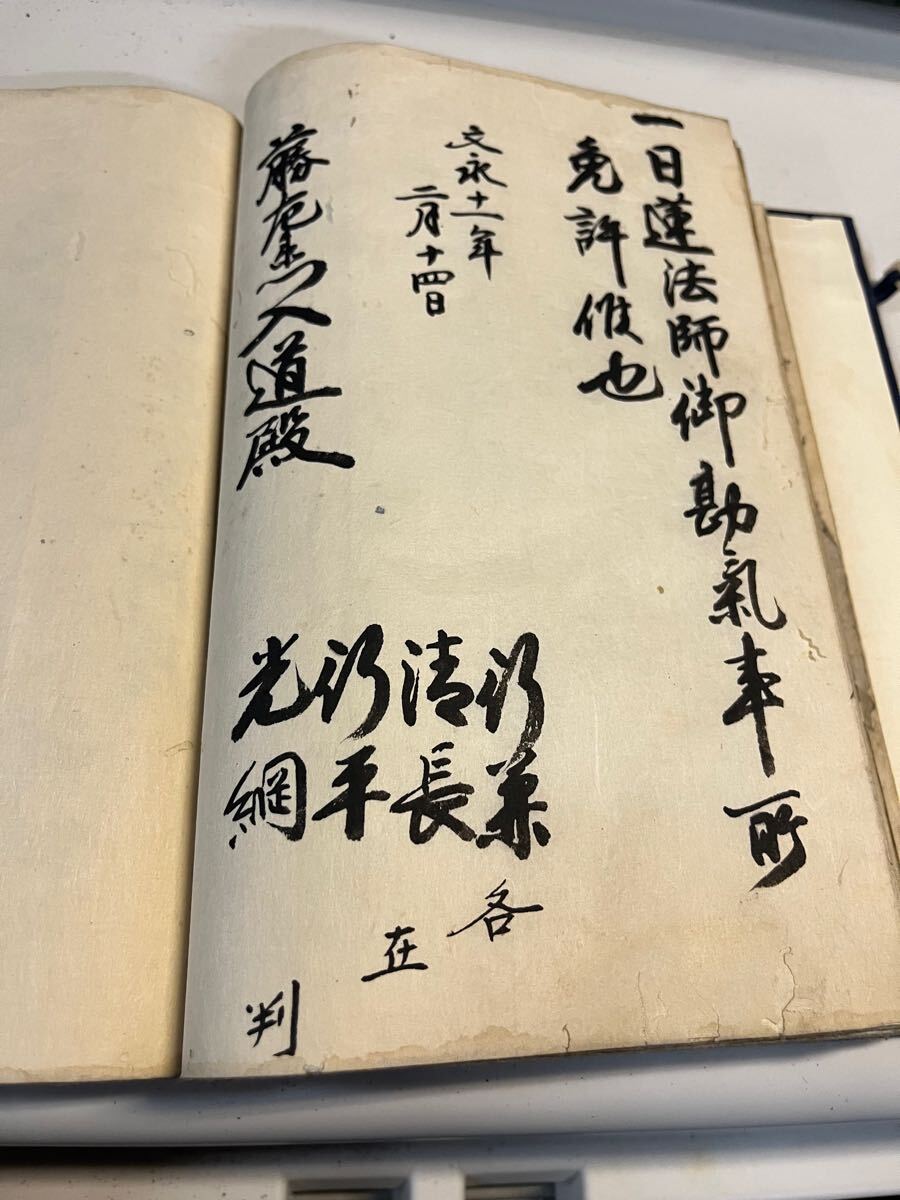 一日蓮法師御勘氣事所
免許候也
文永十一年
二月十四日
行兼
清長
行平
光綱
各
在
判
藤左衛門入道殿